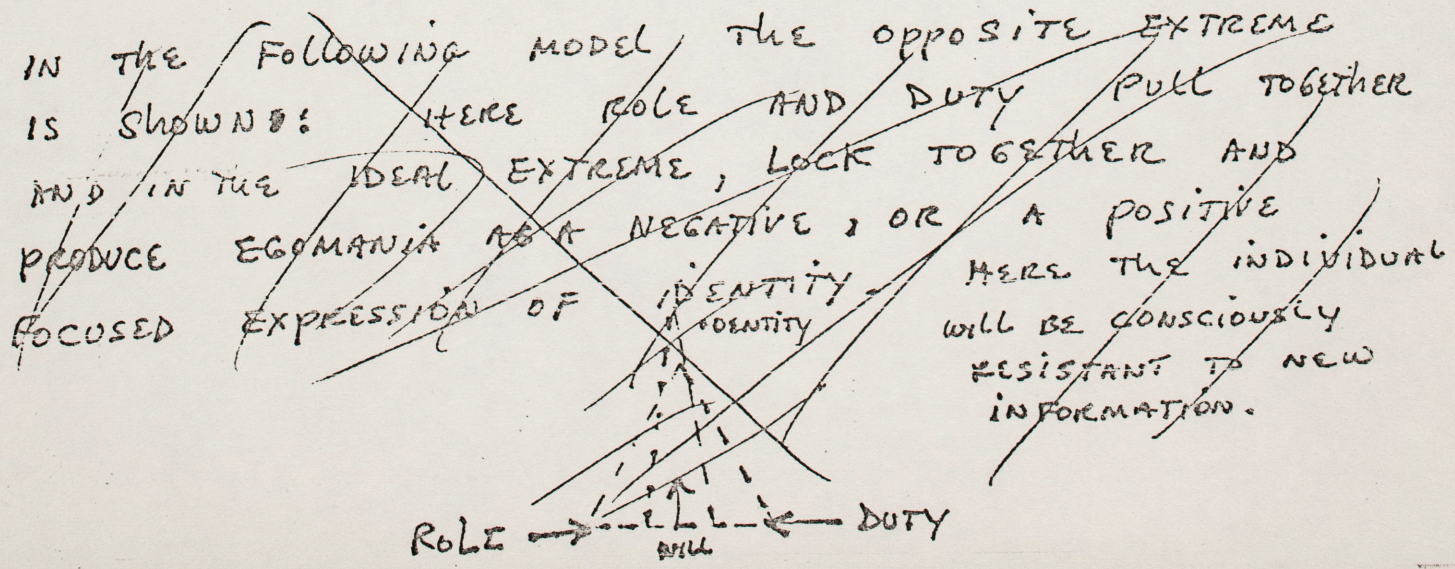 IN THE FOLLOWING MODEL THE OPPOSITE EXTREME
IS SHOWN: HERE ROLE AND DUTY PULL TOGETHER
AND IN THE IDEAL EXTREME, LOCK TOGETHER AND
PRODUCE EGOMANIA AS A NEGATIVE, OR A POSITIVE
FOCUSED EXPRESSION OF IDENTITY.
HERE THE INDIVIDUAL
WILL BE CONSCIOUSLY
RESISTANT TO NEW
INFORMATION.
IDENTITY
ROLE DUTY
WILL